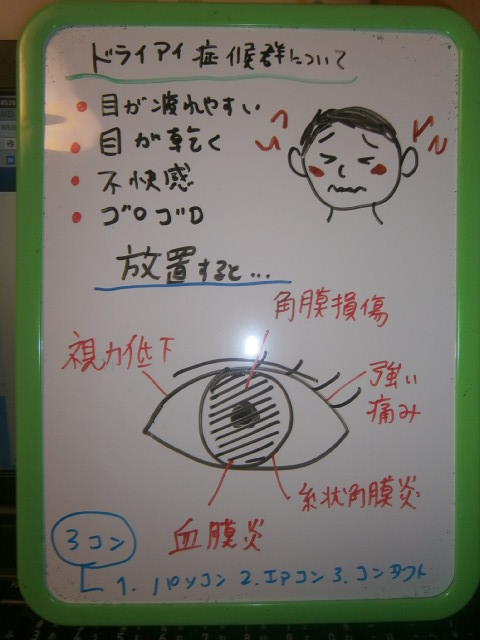 ドライアイ症候群について
目が疲れやすい
目が乾く
不快感
ゴロゴロ
放置すると...
角膜損傷
視力低下
強い
痛み
糸状角膜炎
血膜炎
3コン
1. パソコン 2. エアコン 3. コンタクト